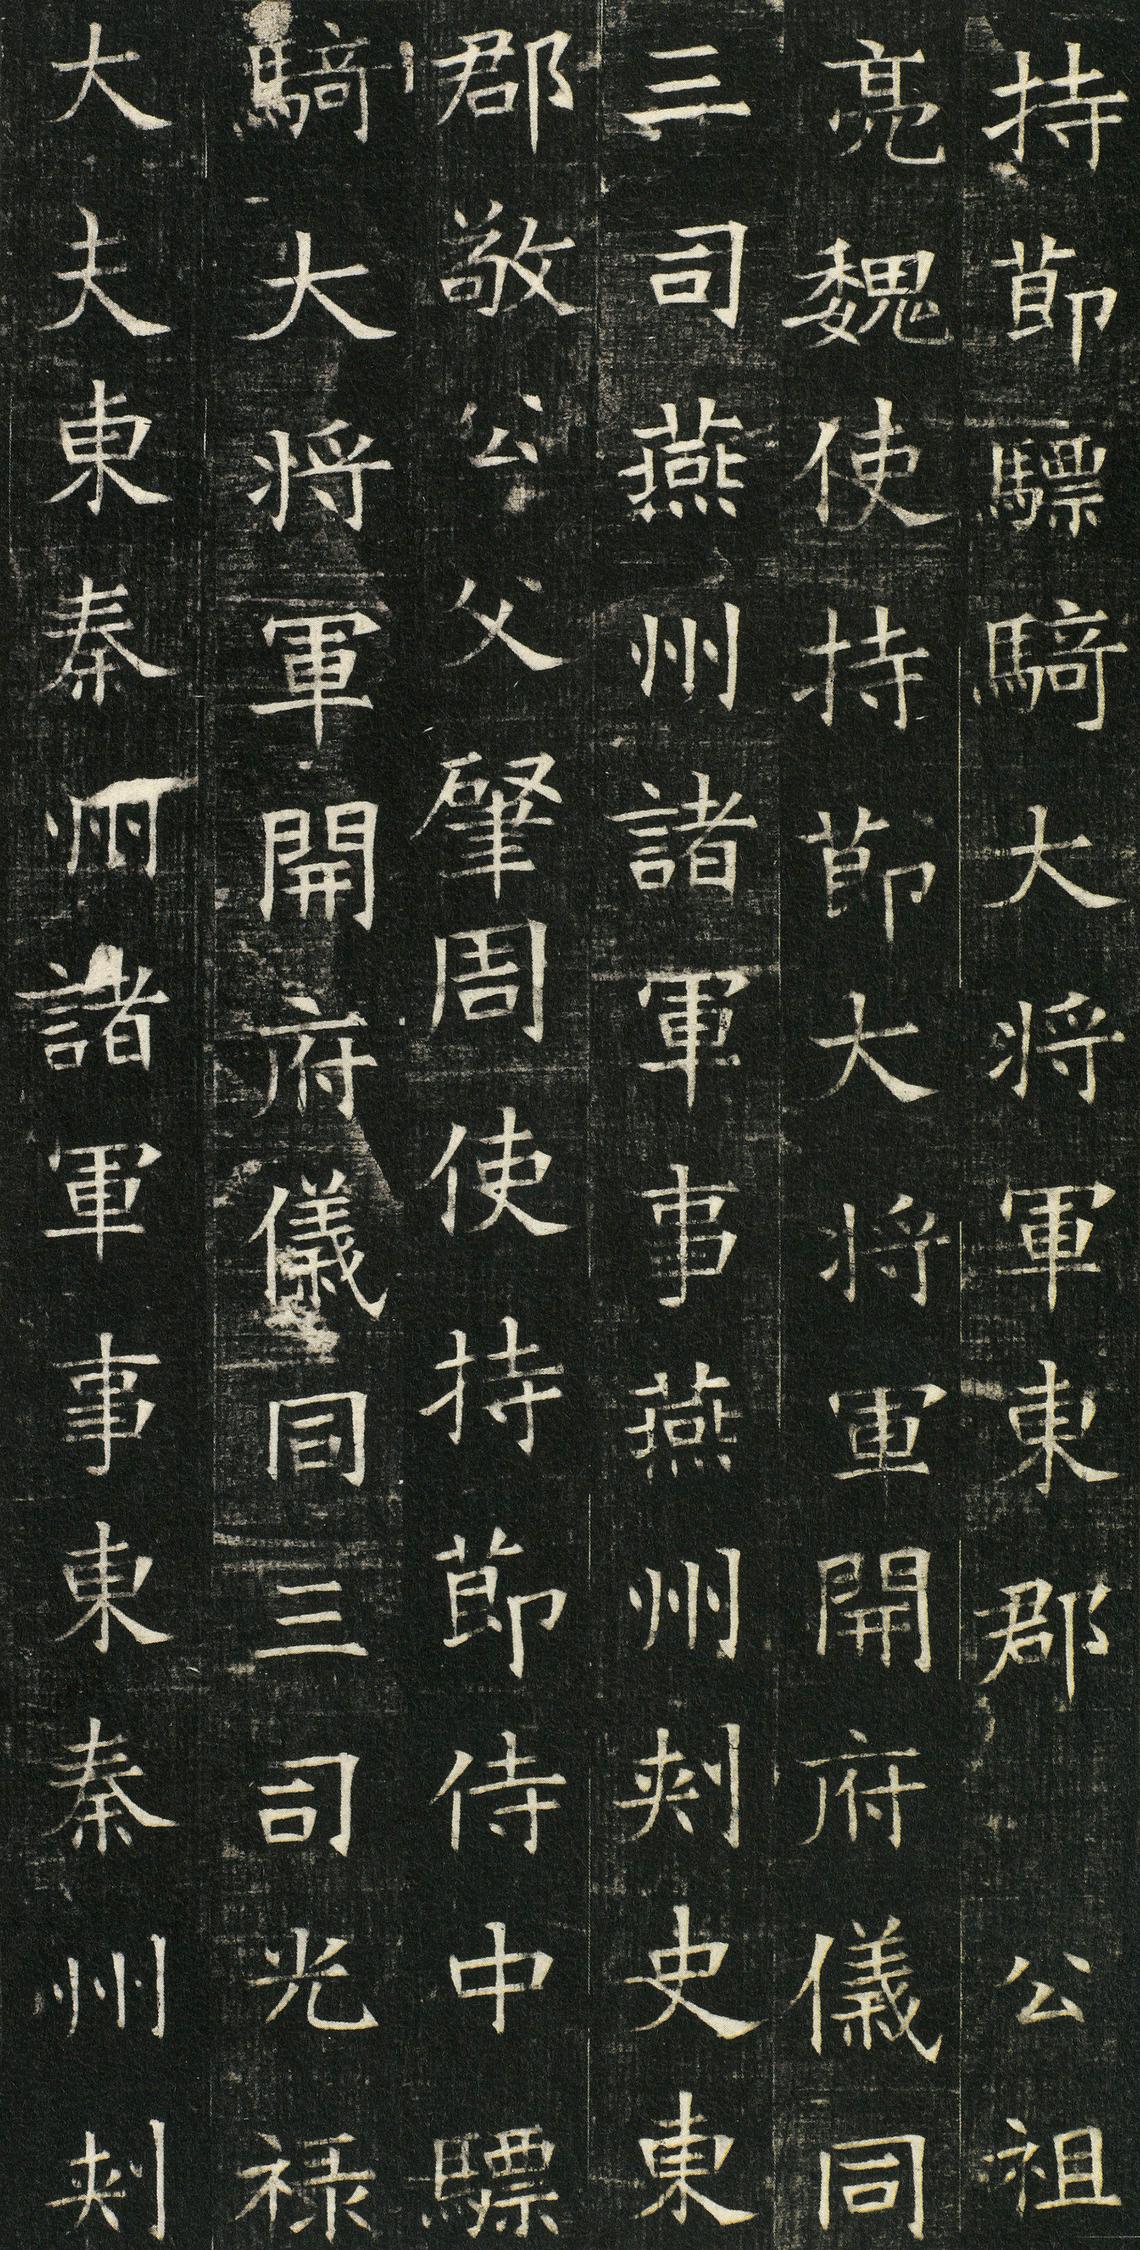 持節驃騎大將軍東郡公祖
亮魏使持節大將軍開府儀同
三司燕州諸軍事燕州刺史東
郡敬公父肇周使持節侍中驃
騎大將軍開府儀同三司光祿
大夫東秦州諸軍事東秦州刺